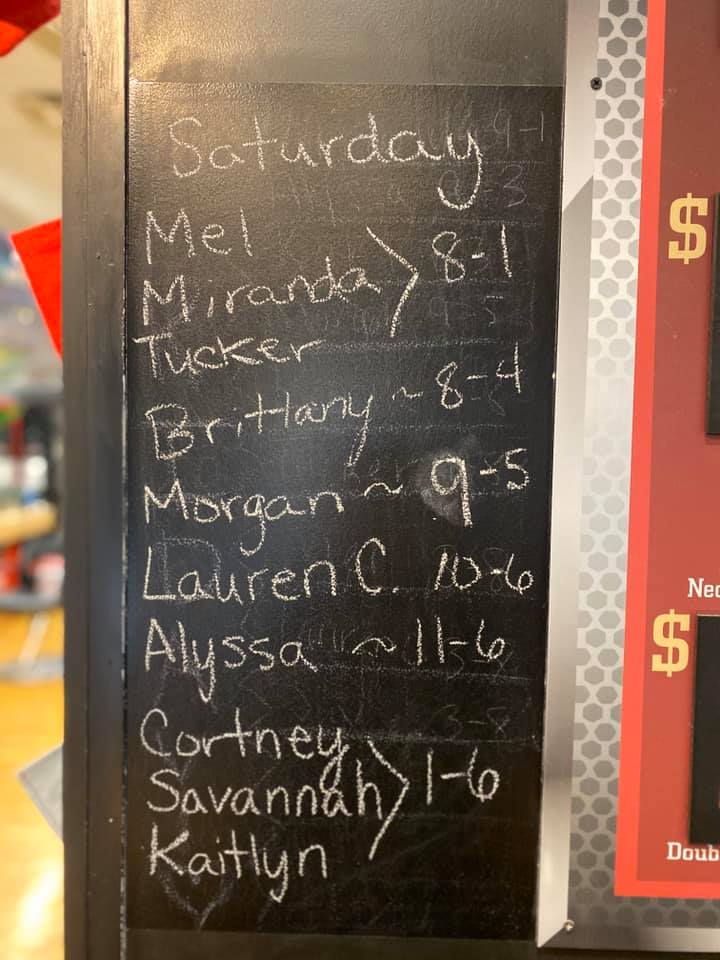 Saturday
Mel
Miranda 8-1
Tucker
Brittany ~ 8-4
Morgan ~ 9-5
Lauren C. 10-6
Alyssa ~ 11-6
Cortney
Savannah 1-6
Kaitlyn
$
$